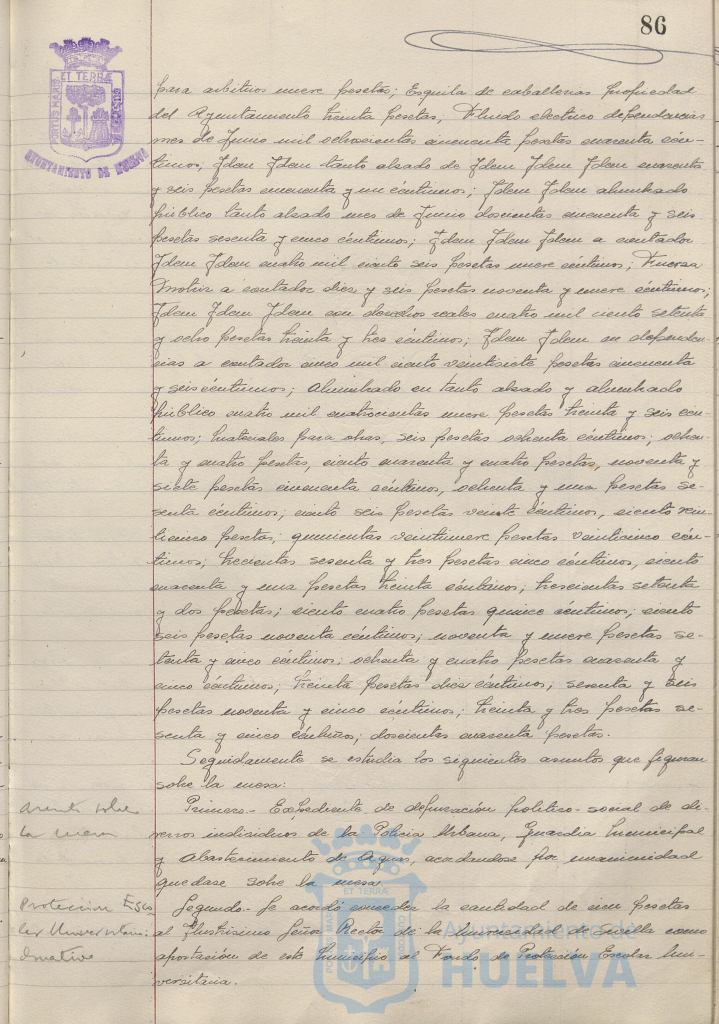 86
PORTUS MARIS
ET TERRÆ
CUSTODIA
AYUNTAMIENTO DE HUELVA
para arbitrios nueve pesetas; Esquila de caballerias propiedad
del Ayuntamiento treinta pesetas; Fluido electrico dependencias
mes de Junio mil ochocientas cincuenta pesetas cuarenta cén-
timos; Idem Idem tanto alzado de Idem Idem Idem cuarenta
y seis pesetas cincuenta y un céntimos; Idem Idem alumbrado
público tanto alzado mes de Junio doscientas cincuenta y seis
pesetas sesenta y cinco céntimos; Idem Idem Idem a contador
Idem Idem cuatro mil ciento seis pesetas nueve céntimos; Fuerza
Motriz a contador diez y seis pesetas noventa y nueve céntimos;
Idem Idem Idem con derechos reales cuatro mil ciento setenta
y ocho pesetas treinta y tres céntimos; Idem Idem en dependen-
cias a contador cinco mil ciento veintisiete pesetas cincuenta
y seis céntimos; alumbrado en tanto alzado y alumbrado
público cuatro mil cuatrocientas nueve pesetas treinta y seis cén-
timos; materiales para obras, seis pesetas ochenta céntimos; ochen-
ta y cuatro pesetas, ciento cuarenta y cuatro pesetas, noventa y
siete pesetas cincuenta céntimos, ochenta y una pesetas se-
senta céntimos; ciento seis pesetas veinte céntimos, ciento vein-
ticinco pesetas; quinientas veintinueve pesetas veinticinco cén-
timos; trecientas sesenta y tres pesetas cinco céntimos, ciento
cuarenta y una pesetas treinta céntimos; trescientas setenta
y dos pesetas; ciento cuatro pesetas quince céntimos; ciento
seis pesetas noventa céntimos; noventa y nueve pesetas se-
tenta y cinco céntimos; ochenta y cuatro pesetas cuarenta y
cinco céntimos; treinta pesetas diez céntimos; sesenta y seis
pesetas noventa y cinco céntimos; treinta y tres pesetas se-
senta y cinco céntimos; doscientas cuarenta pesetas.
Seguidamente se estudia los siguientes asuntos que figuran
sobre la mesa:
Asunto sobre
la mesa
Primero.- Expediente de depuración politico-social de di-
versos individuos de la Policia Urbana, Guardia Municipal
y Abastecimiento de Aguas, acordandose por unanimidad
quedase sobre la mesa.
Proteccion Esco
lar Universitaria:
Donativo
Segundo.- Se acordó conceder la cantidad de cien pesetas
al Ilustrisimo Señor Rector de la Universidad de Sevilla como
aportación de este Municipio al Fondo de Protección Escolar Uni-
versitaria.
Ayuntamiento de
HUELVA